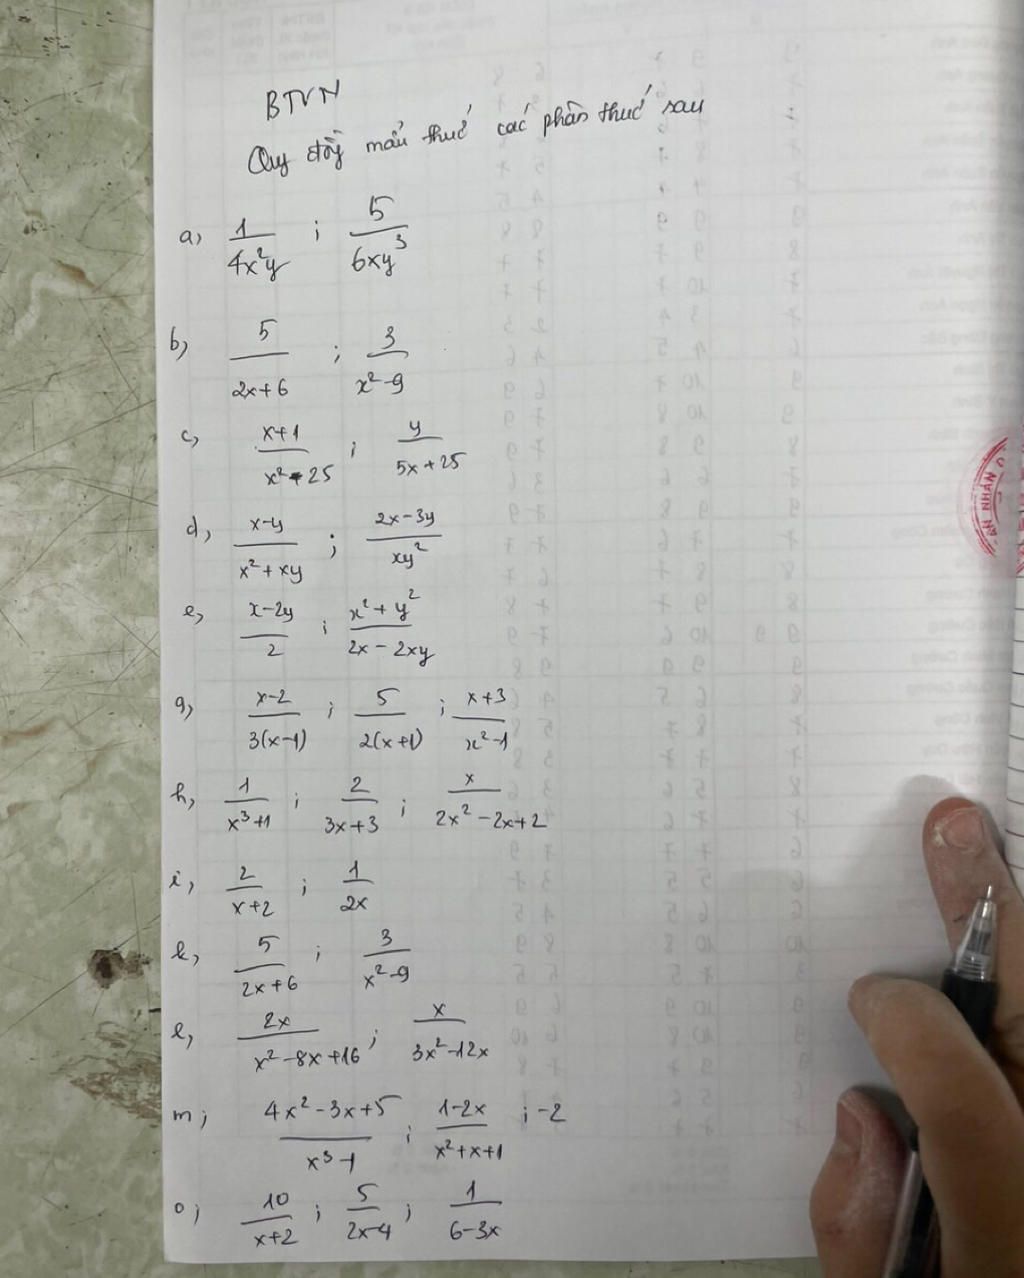 BTVN
Quy đồng mẫu thức các phân thức sau
a, 1/4x²y ; 5/6xy³
b, 5/2x+6 ; 3/x²-9
c, x+1/x²-25 ; y/5x+25
d, x-y/x²+xy ; 2x-3y/xy²
e, x-2y/2 ; x²+y²/2x-2xy
g, x-2/3(x-1) ; 5/2(x+1) ; x+3/x²-1
h, 1/x³+1 ; 2/3x+3 ; x/2x²-2x+2
i, 2/x+2 ; 1/2x
k, 5/2x+6 ; 3/x²-9
l, 2x/x²-8x+16 ; x/3x²-12x
m; 4x²-3x+5/x³-1 ; 1-2x/x²+x+1 ; -2
o; 10/x+2 ; 5/2x-4 ; 1/6-3x